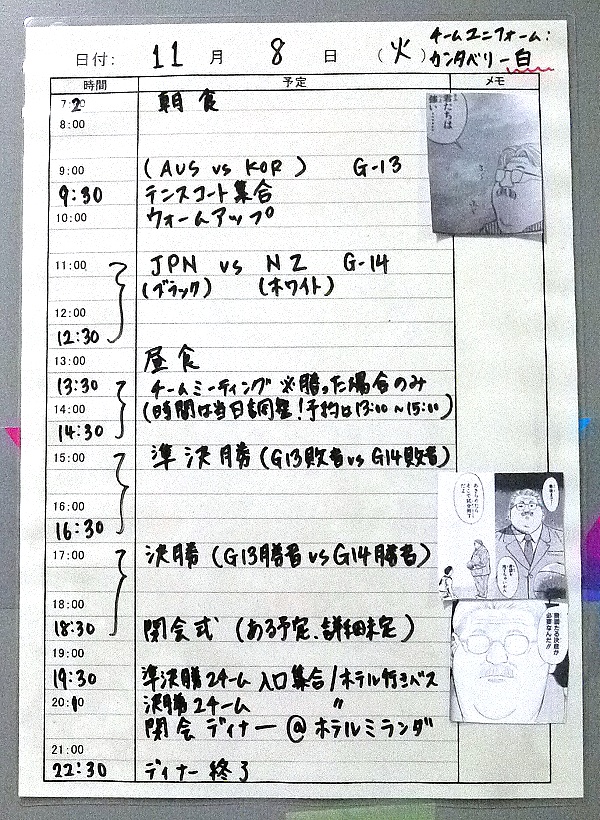 チームユニフォーム:
日付: 11 月 8 日 (火) カンタベリー白
時間 予定 メモ
7:20 朝食
8:00
君たちは
強い……
9:00 (AUS vs KOR) G-13
9:30 テニスコート集合
10:00 ウォームアップ
11:00 JPN vs NZ G-14
(ブラック) (ホワイト)
12:00
12:30
13:00 昼食
13:30 チームミーティング ※勝った場合のみ
14:00 (時間は当日調整!予約は13:00~15:00)
14:30
15:00 準決勝(G13敗者vsG14敗者)
あきらめたら
そこで試合終了
だよ
16:00
16:30
17:00 決勝(G13勝者vsG14勝者)
18:00
18:30 閉会式(ある予定、詳細未定)
断固たる決意が
必要なんだ!!
19:00
19:30 準決勝2チーム 入口集合/ホテル行きバス
20:10 決勝2チーム 〃
閉会ディナー @ホテルミランダ
21:00
22:30 ディナー終了